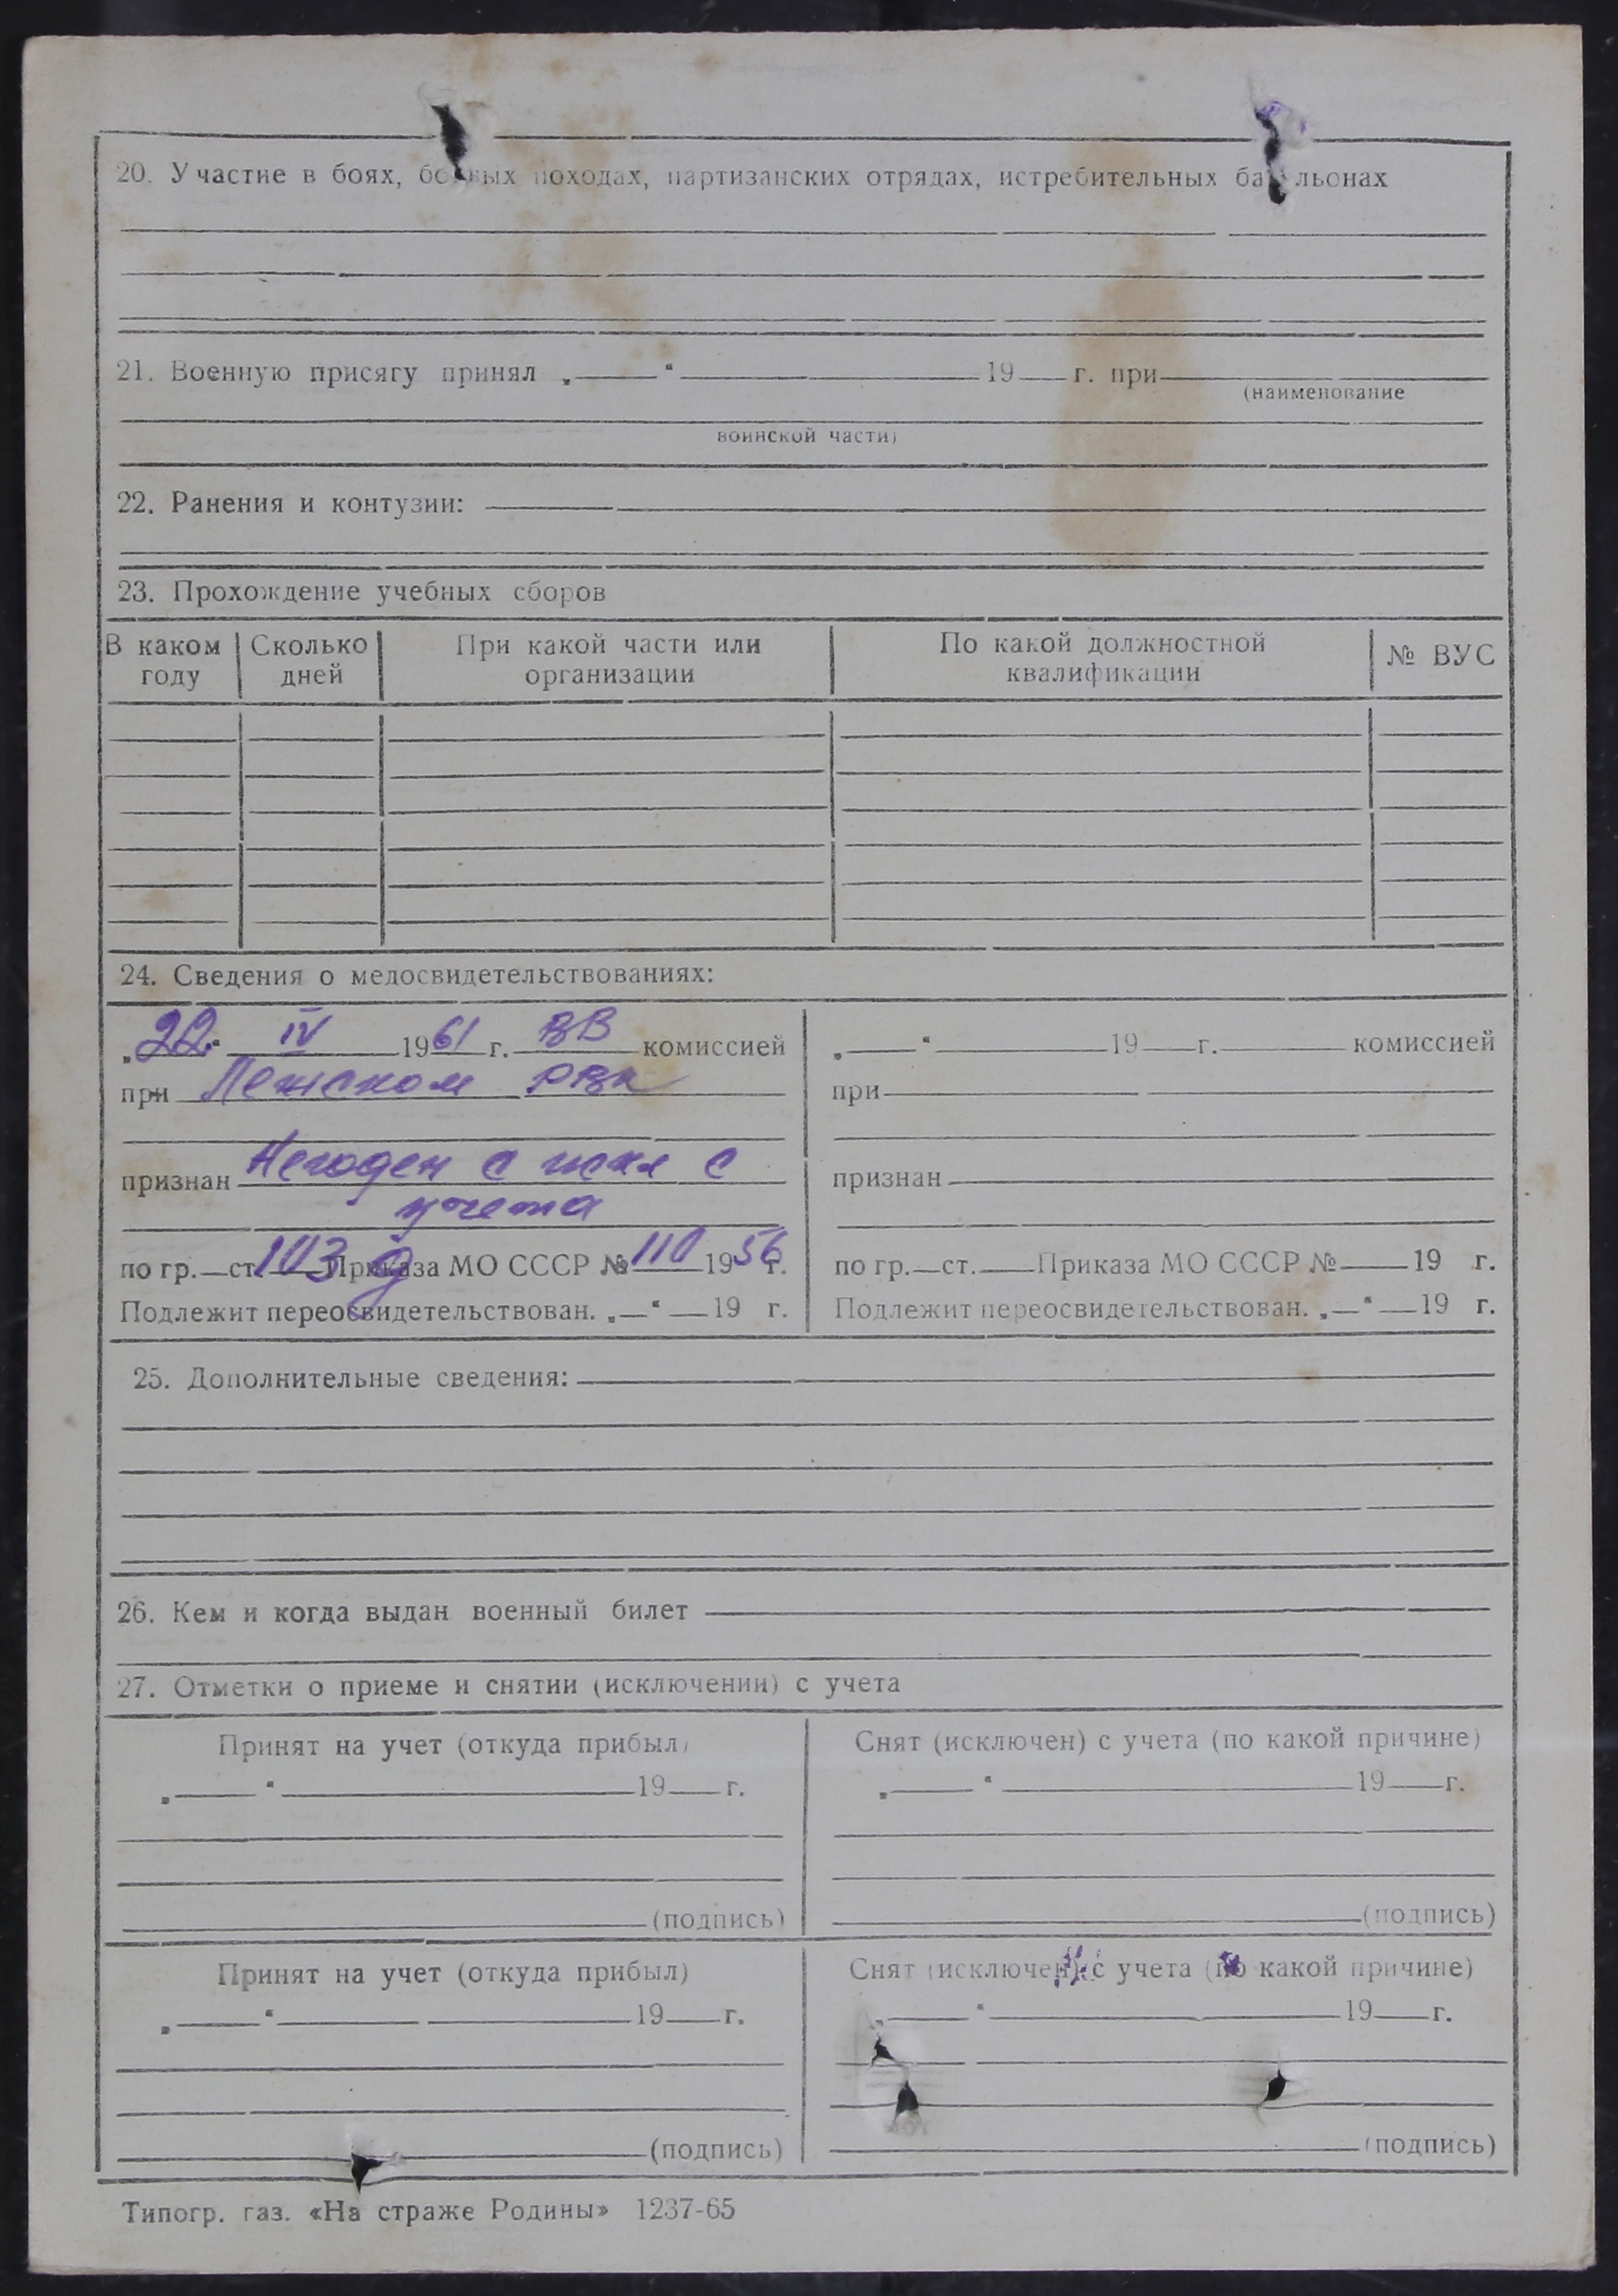 20. Участие в боях, боевых походах, партизанских отрядах, истребительных батальонах
21. Военную присягу принял „ “ 19 г. при
(наименование
воинской части)
22. Ранения и контузии:
23. Прохождение учебных сборов
В каком году | Сколько дней | При какой части или организации | По какой должностной квалификации | № ВУС
24. Сведения о медосвидетельствованиях:
„22“ IV 1961 г. ВВ комиссией
при Лежском РВК
признан Негоден с искл с
учета
по гр. ст. 103 д Приказа МО СССР № 110 1956 г.
Подлежит переосвидетельствован. „ “ 19 г.
„ “ 19 г. комиссией
при
признан
по гр. ст. Приказа МО СССР № 19 г.
Подлежит переосвидетельствован. „ “ 19 г.
25. Дополнительные сведения:
26. Кем и когда выдан военный билет
27. Отметки о приеме и снятии (исключении) с учета
Принят на учет (откуда прибыл)
„ “ 19 г.
(подпись)
Снят (исключен) с учета (по какой причине)
„ “ 19 г.
(подпись)
Принят на учет (откуда прибыл)
„ “ 19 г.
(подпись)
Снят (исключен) с учета (по какой причине)
„ “ 19 г.
(подпись)
Типогр. газ. «На страже Родины» 1237-65